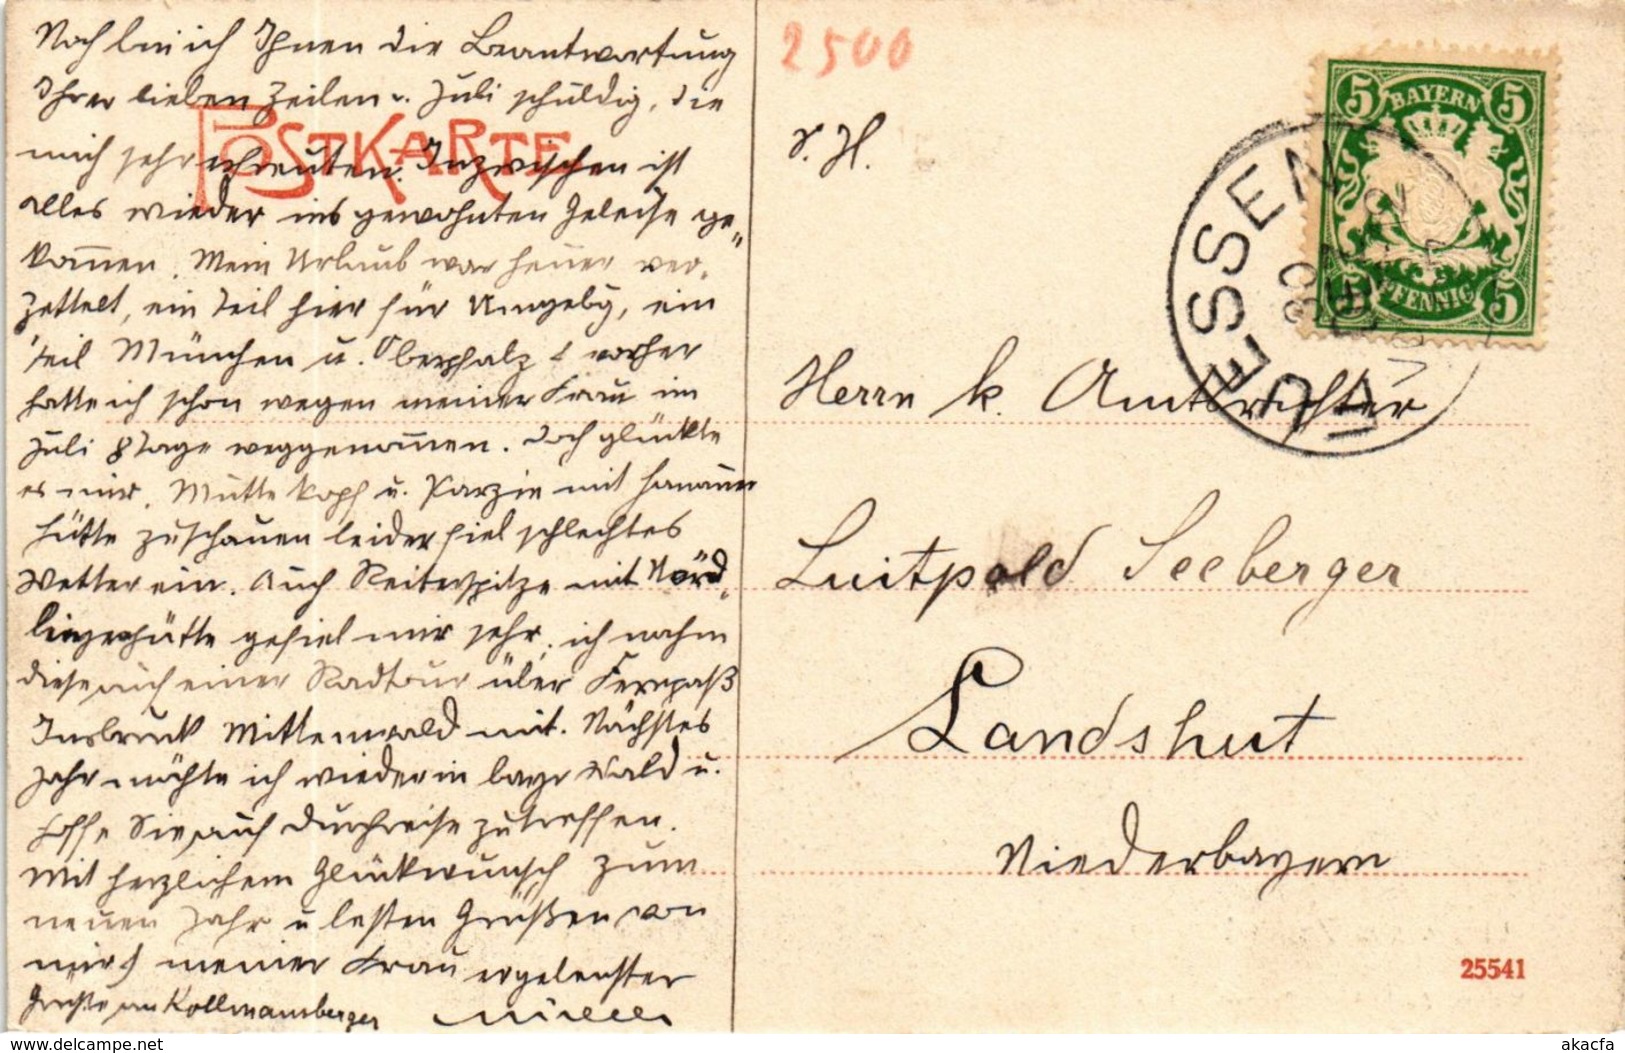 Noch bin ich Ihnen die Beantwortung
Ihrer lieben Zeilen v. Juli schuldig, die
mich sehr erfreuten. Inzwischen ist
alles wieder ins gewohnte Geleise ge-
kom̅en. Mein Urlaub war heuer ver-
zettelt, ein Teil hier für Umgebg, ein
Teil München u. Oberpfalz & vorher
hatte ich schon wegen meiner Frau im
Juli 8 Tage weggenom̅en. Doch glückte
es mir, Muttekopf u. Parzin mit Hanauer
hütte zu schauen leider fiel schlechtes
Wetter ein. Auch Reiterspitze mit Nörd-
lingerhütte gefiel mir sehr, ich nahm
diese auf einer Radtour über Fernpaß
Insbruck Mittenwald mit. Nächstes
Jahr möchte ich wieder in bayr Wald u.
hoffe Sie auf Durchreise zu treffen.
Mit herzlichem Glückwunsch zum
neuen Jahr u besten Grüßen von
mir & meiner Frau ergebenster
Grüße an Kollmannsberger
POSTKARTE
2500
S. H.
BAYERN
5 5
PFENNIG
5
FÜSSEN
Herrn k. Amtsrichter
Luitpold Seeberger
Landshut
Niederbayern
25541
www.delcampe.net
akacfa